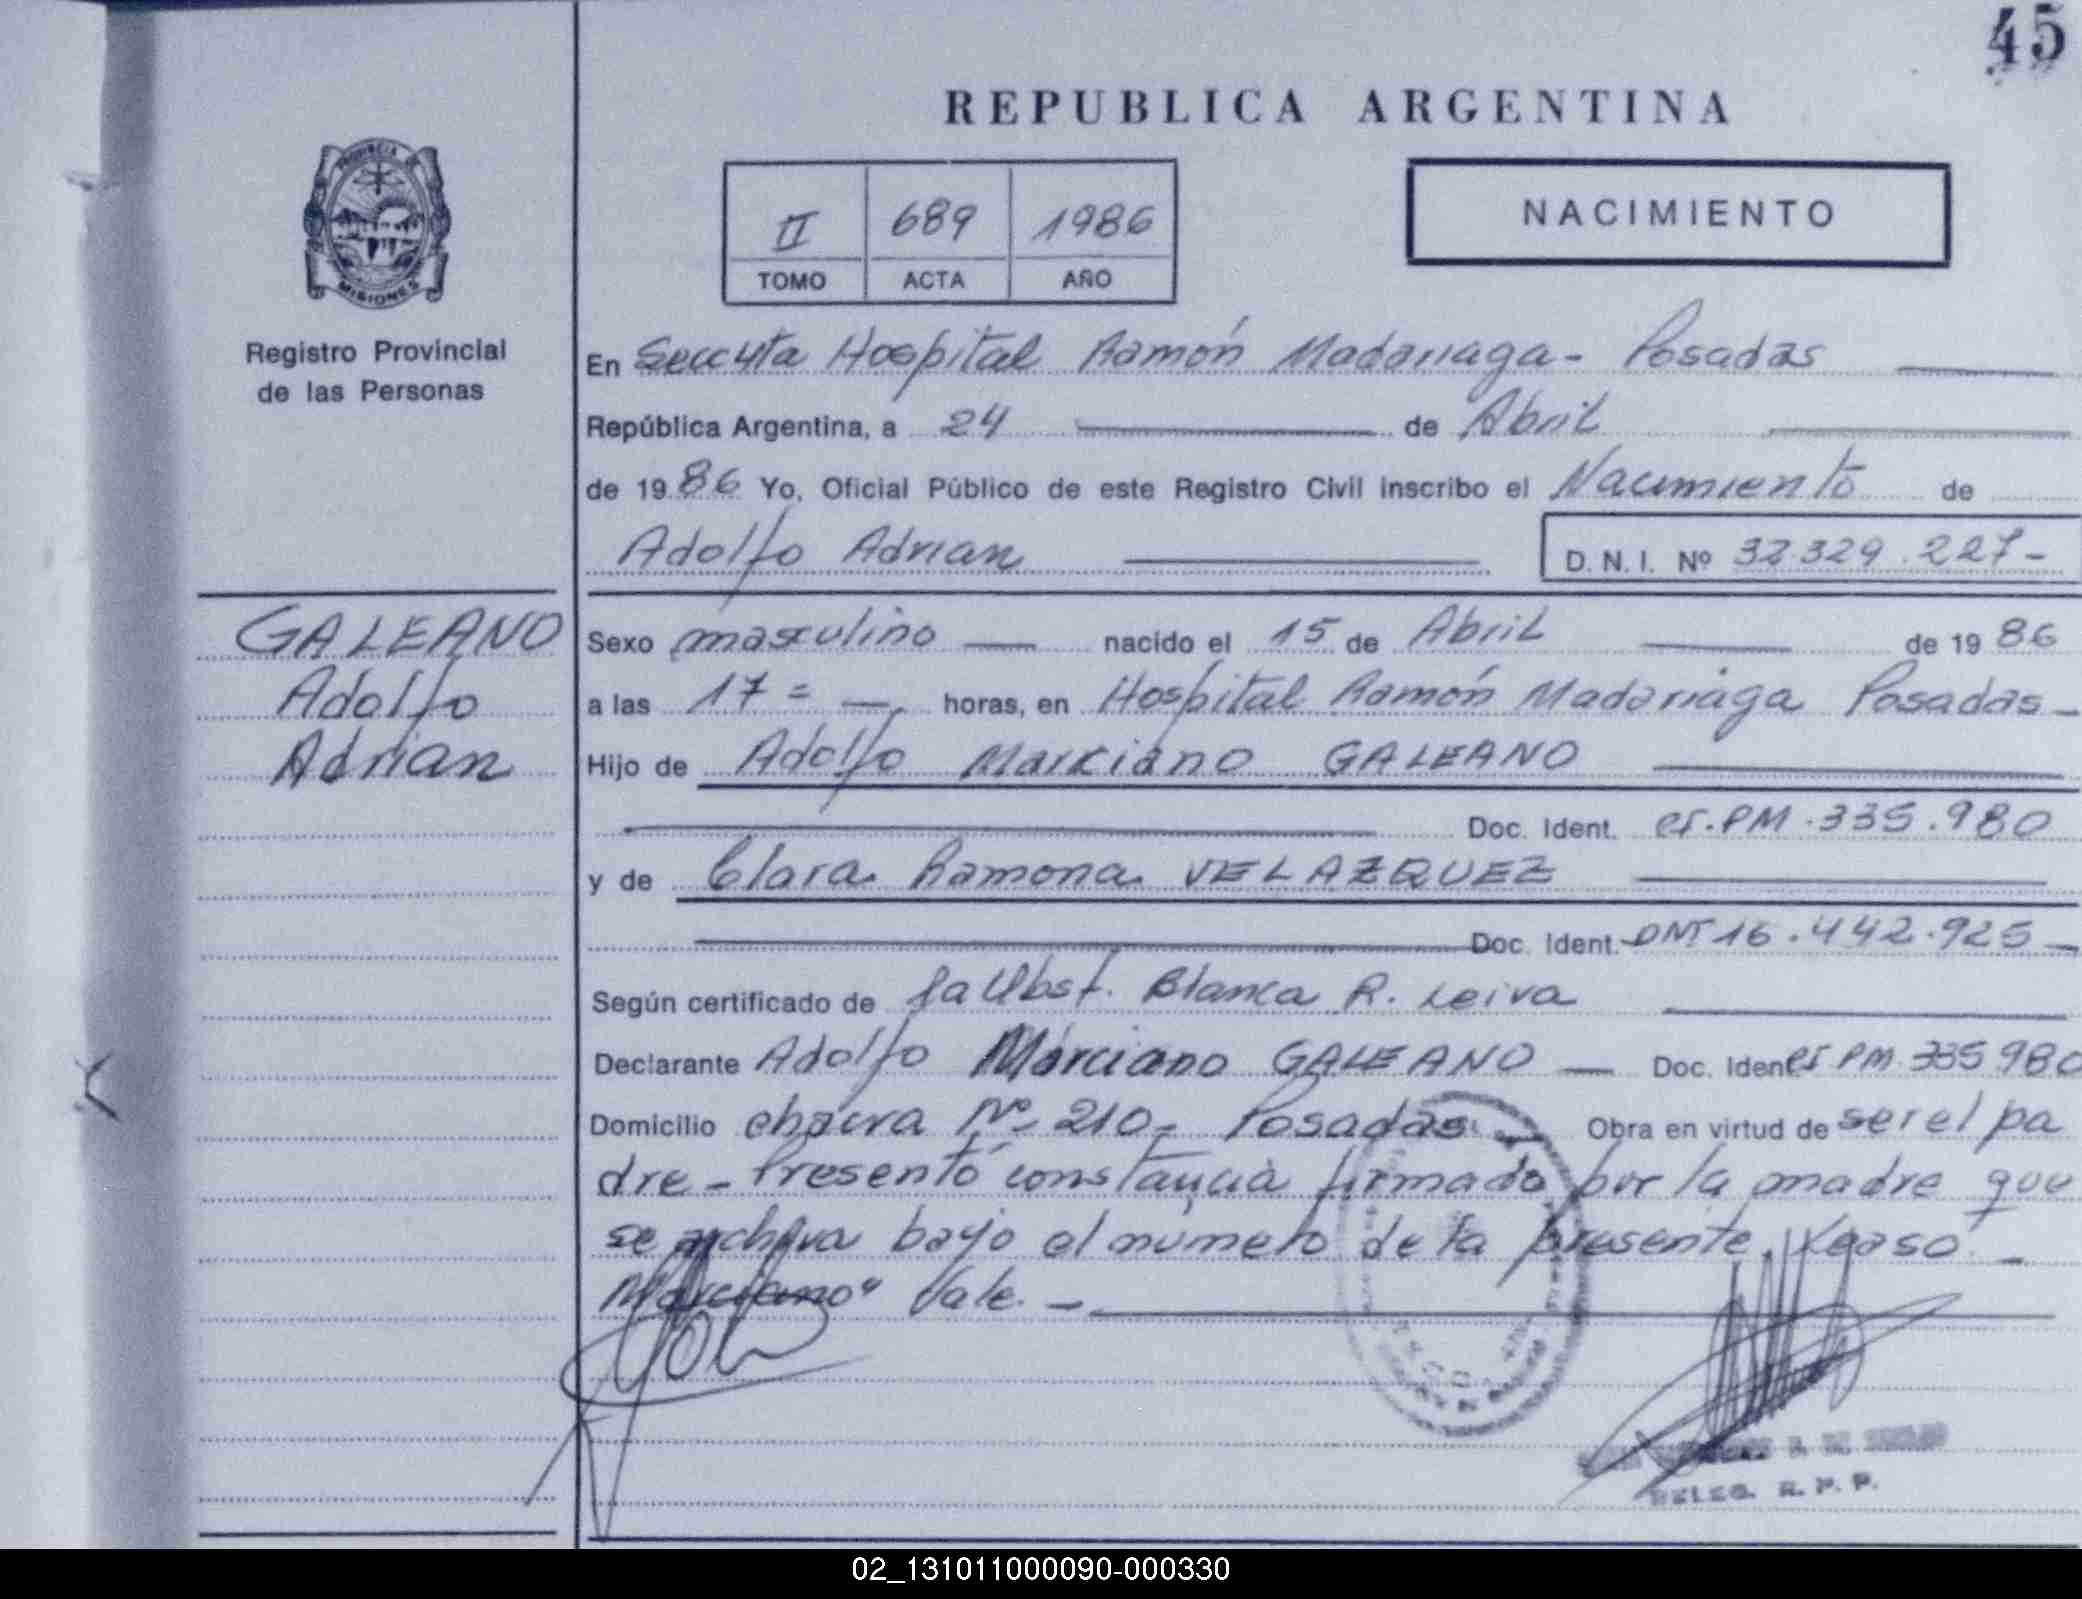 45
REPUBLICA ARGENTINA
PROVINCIA DE
MISIONES
Registro Provincial
de las Personas
II 689 1986
TOMO ACTA AÑO
NACIMIENTO
En Secc 4ta Hospital Ramón Madariaga - Posadas
República Argentina, a 24 de Abril
de 1986 Yo, Oficial Público de este Registro Civil inscribo el Nacimiento de
Adolfo Adrian D. N. I. Nº 32.329.227-
GALEANO
Adolfo
Adrian
Sexo masculino nacido el 15 de Abril de 1986
a las 17= horas, en Hospital Ramón Madariaga Posadas-
Hijo de Adolfo Marciano GALEANO
Doc. Ident. CI.PM.335.980
y de Clara Ramona VELAZQUEZ
Doc. Ident. DNI 16.442.925-
Según certificado de la Obst. Blanca R. Leiva
Declarante Adolfo Marciano GALEANO Doc. Ident. CI PM.335980
Domicilio chacra Nº 210- Posadas Obra en virtud de ser el pa
dre - Presentó constancia firmada por la madre que
se archiva bajo el numero de la presente.
Marciano" Vale.-
DELEG. R. P. P.
02_131011000090-000330